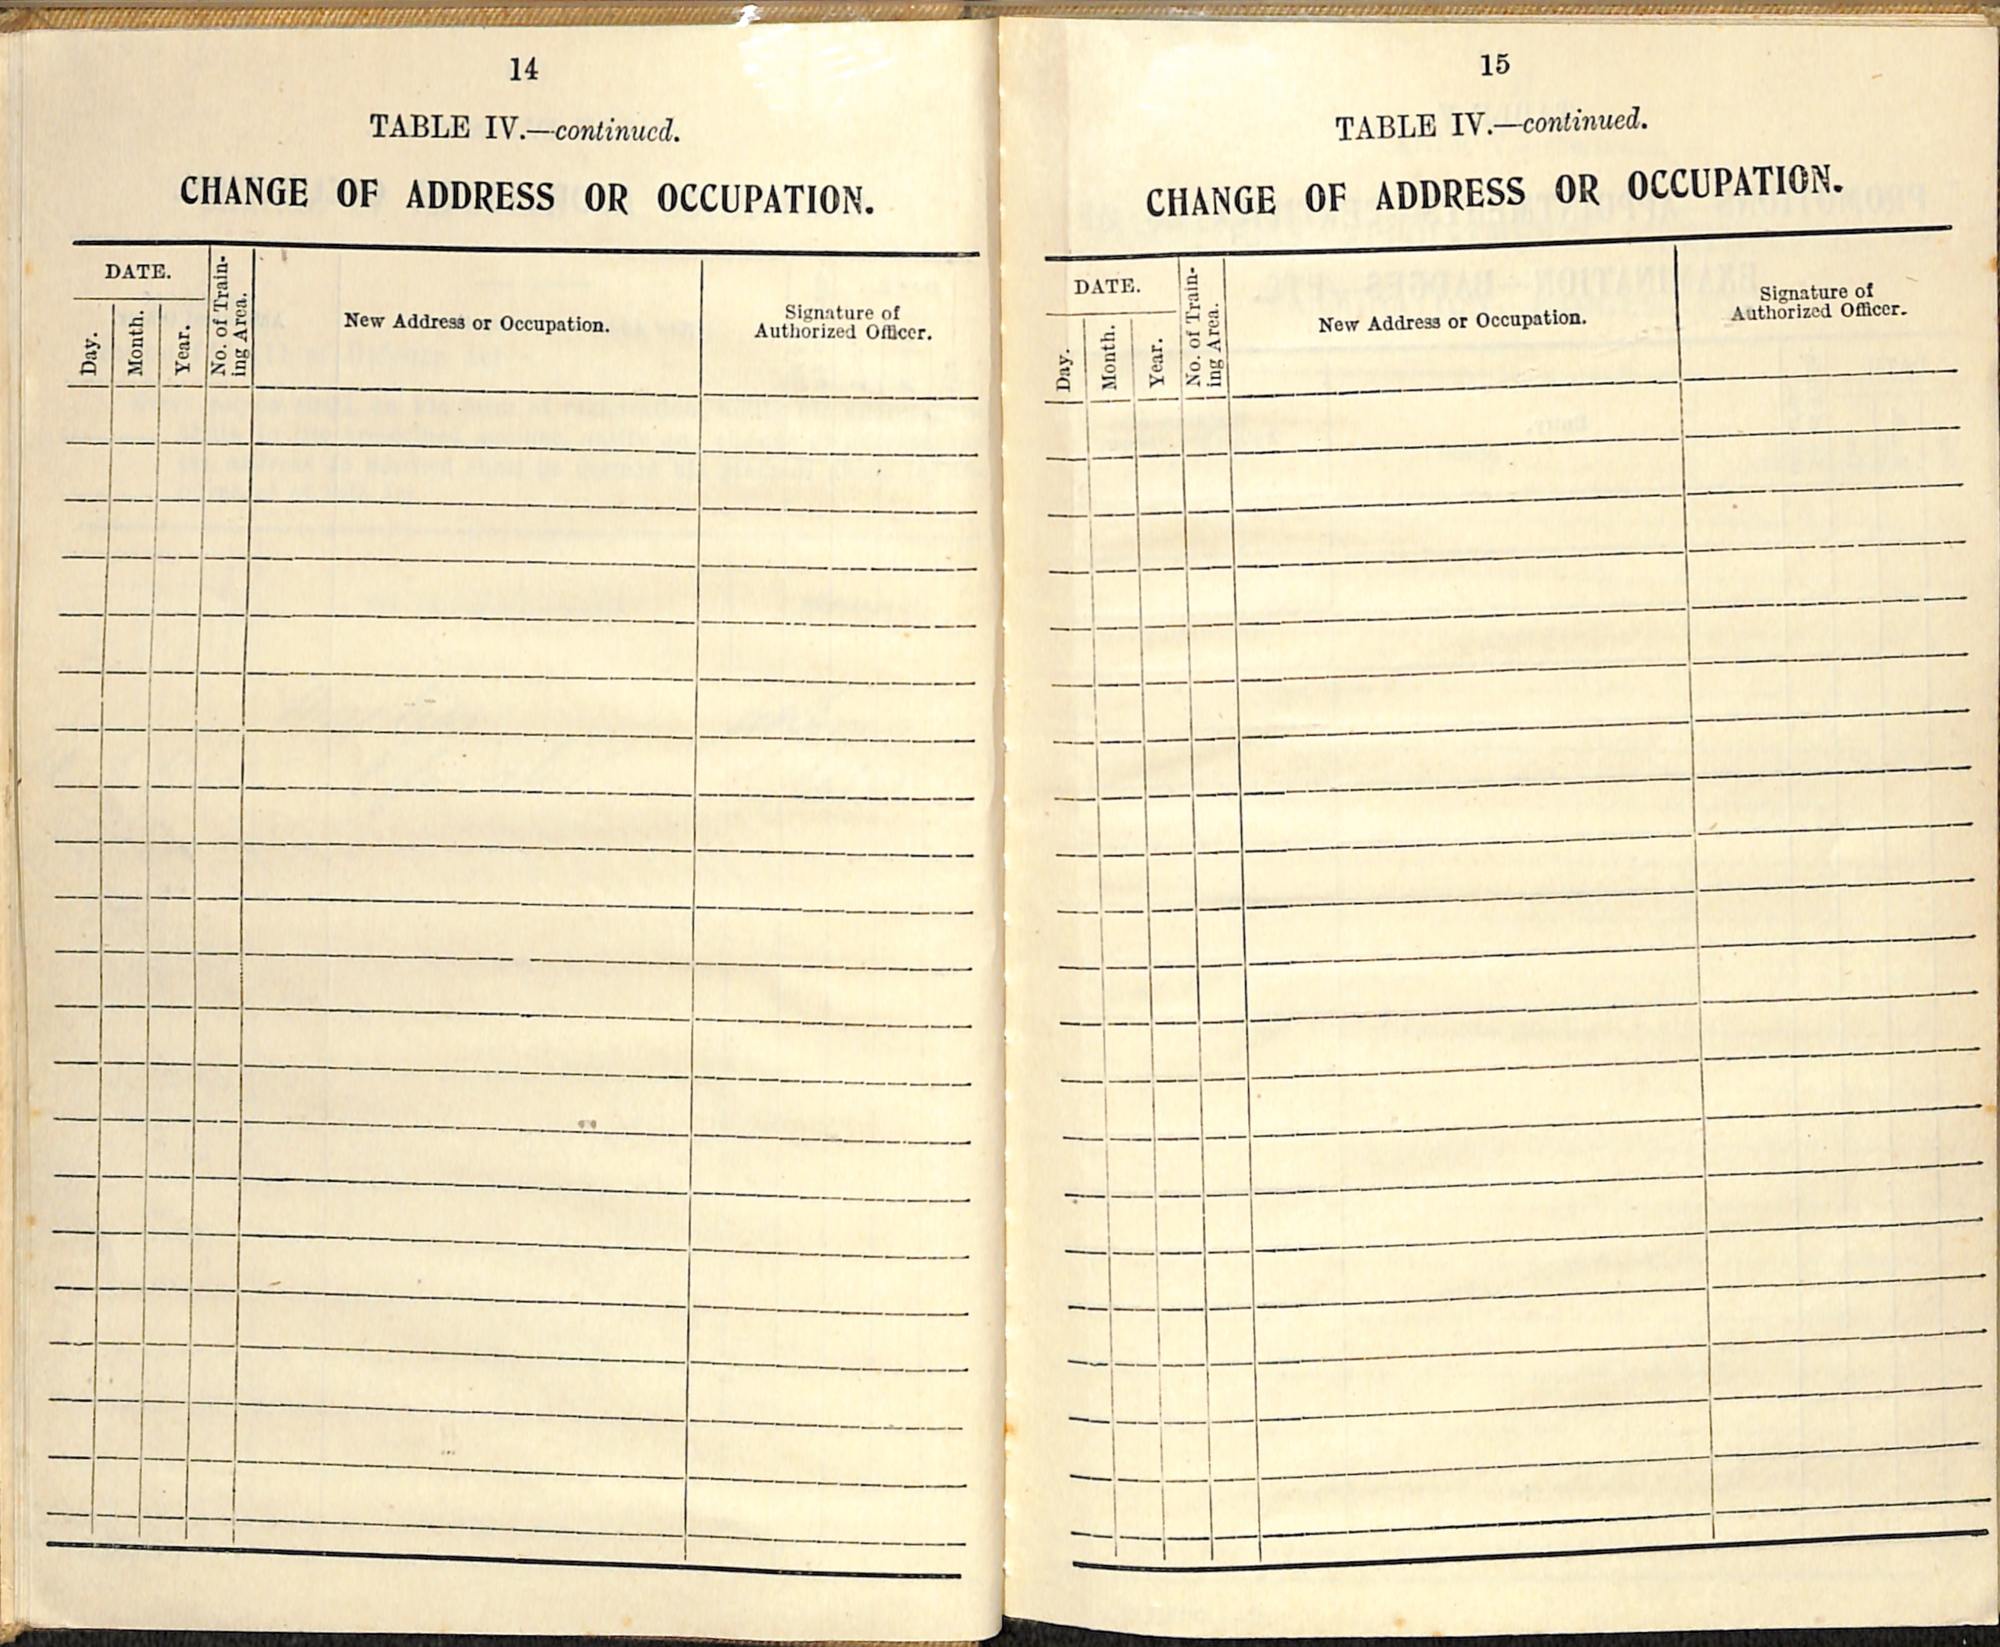 14
TABLE IV.—continued.
CHANGE OF ADDRESS OR OCCUPATION.
DATE.
Day.
Month.
Year.
No. of Train-
ing Area.
New Address or Occupation.
Signature of
Authorized Officer.
15
TABLE IV.—continued.
CHANGE OF ADDRESS OR OCCUPATION.
DATE.
Day.
Month.
Year.
No. of Train-
ing Area.
New Address or Occupation.
Signature of
Authorized Officer.